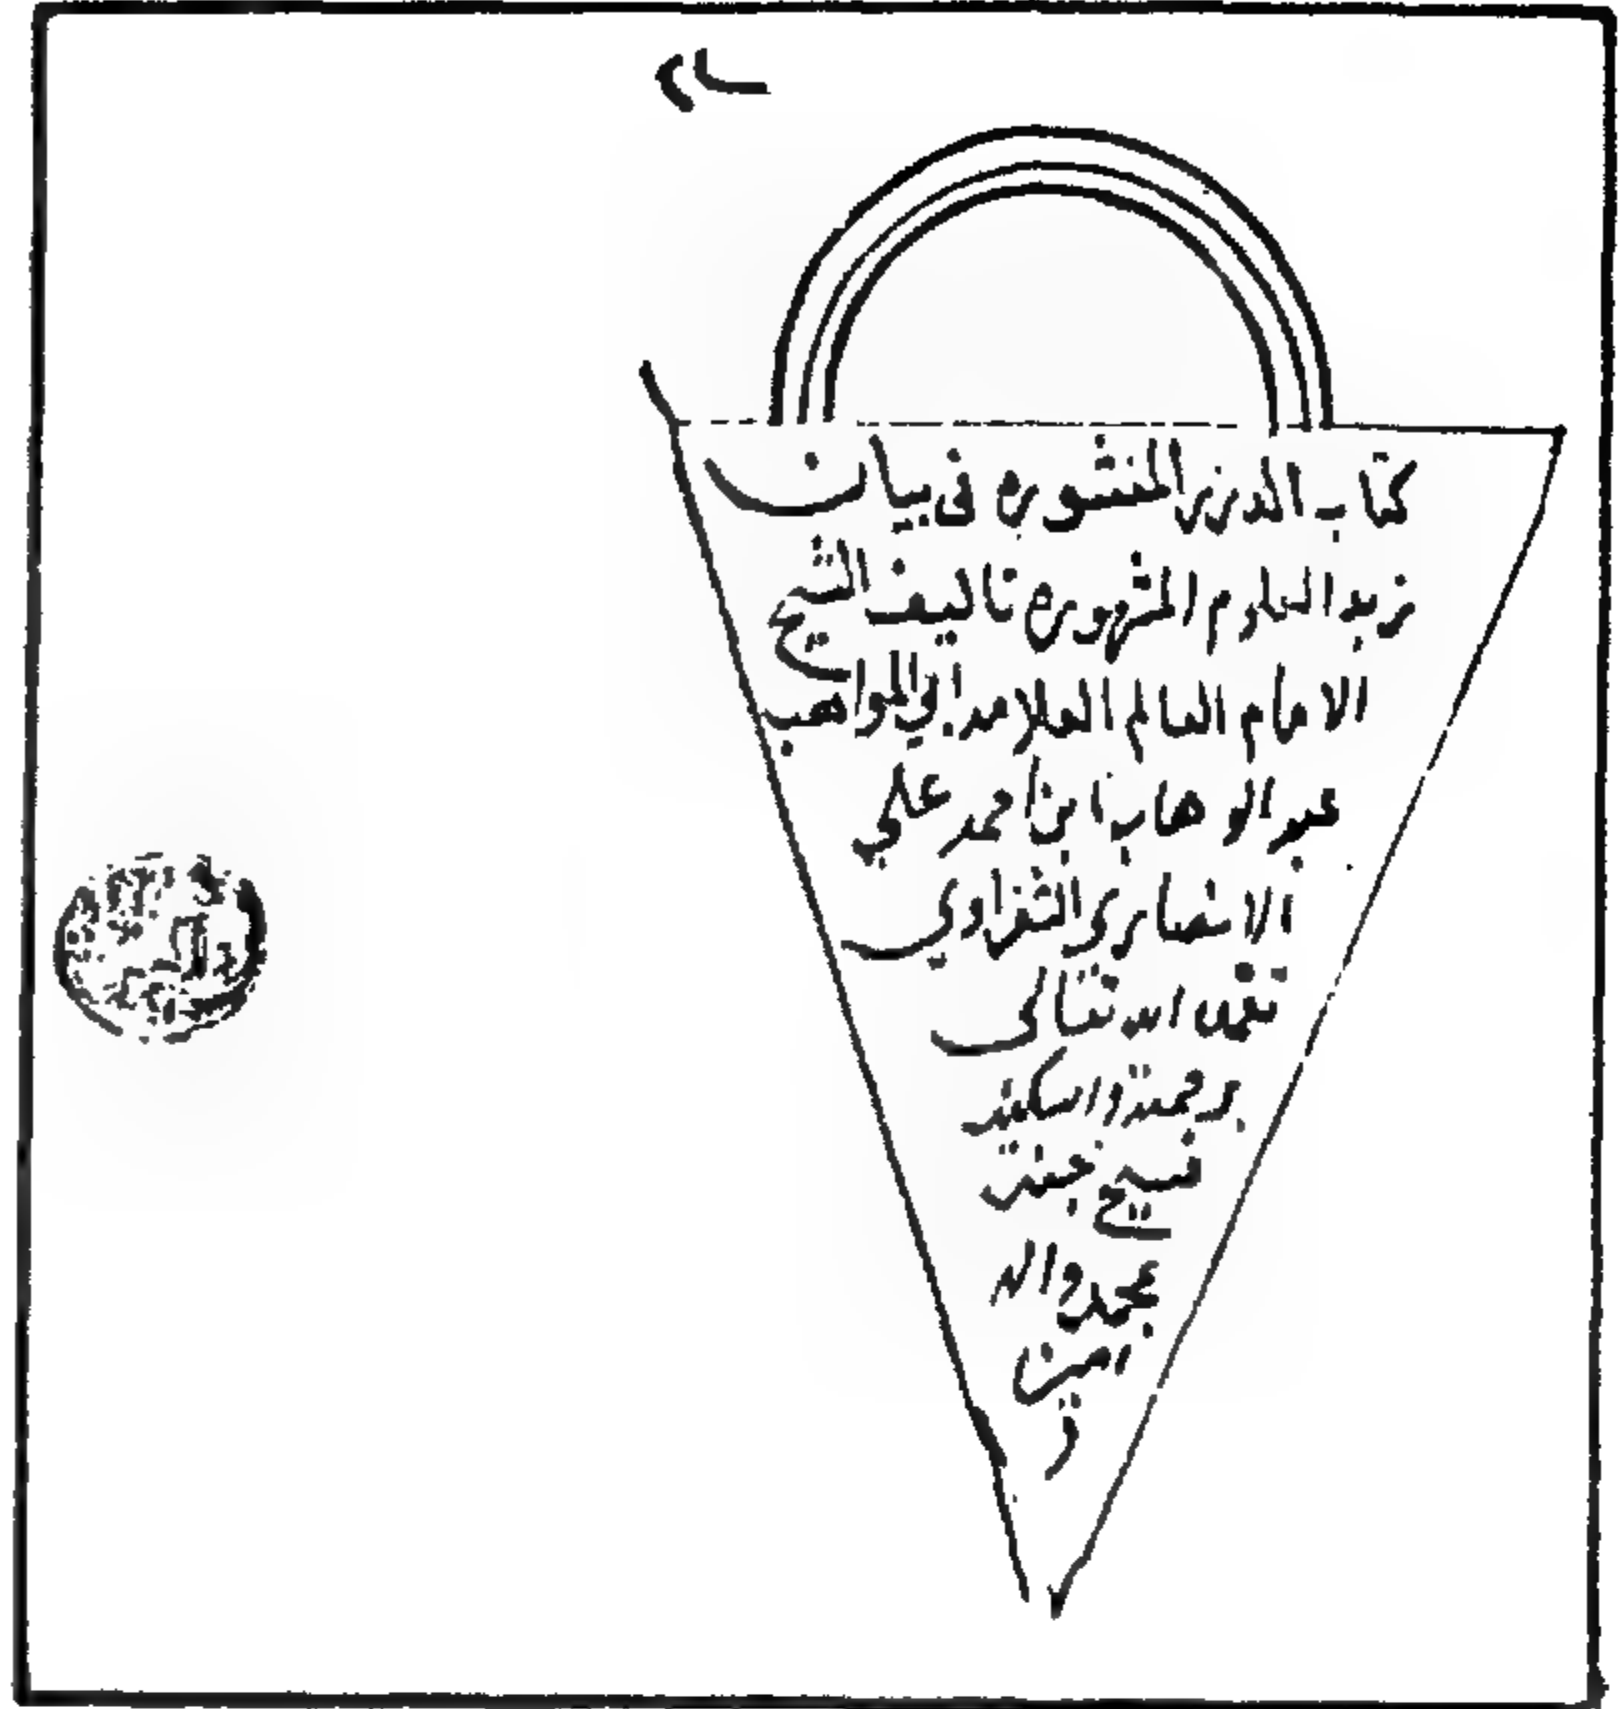 كتاب الدرر المنثوره فى بيان
زبد العلوم المشهوره تاليف الشيخ
الامام العالم العلامه ابي المواهب
عبد الوهاب ابن أحمد علي
الانصاري الشعراوي
تغمده الله تعالى
برحمته واسكنه
فسيح جنته
بمحمد واله
امين